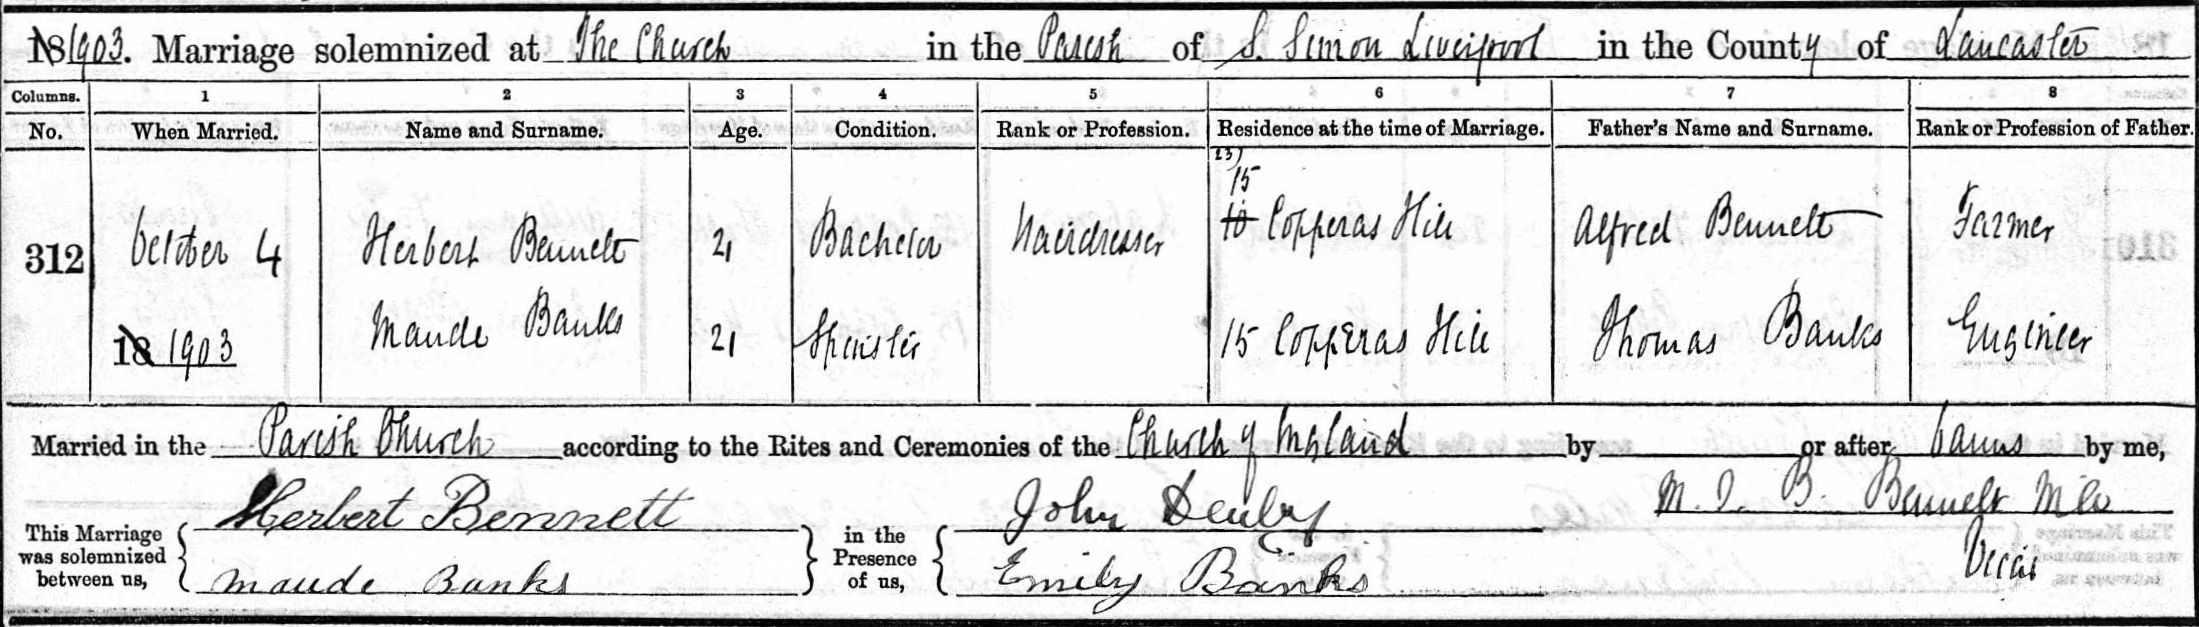 1903. Marriage solemnized at The Church in the Parish of S. Simon Liverpool in the County of Lancaster
Columns. 1 2 3 4 5 6 7 8
No. When Married. Name and Surname. Age. Condition. Rank or Profession. Residence at the time of Marriage. Father's Name and Surname. Rank or Profession of Father.
23)
15
312 October 4 Herbert Bennett 21 Bachelor Hairdresser 10 Copperas Hill Alfred Bennett Farmer
18 1903 Maude Banks 21 Spinster 15 Copperas Hill Thomas Banks Engineer
Married in the Parish Church according to the Rites and Ceremonies of the Church of England by or after banns by me,
Herbert Bennett John Denby M. J. B. Bennett
This Marriage was solemnized between us, in the Presence of us,
Maude Banks Emily Banks Vicar